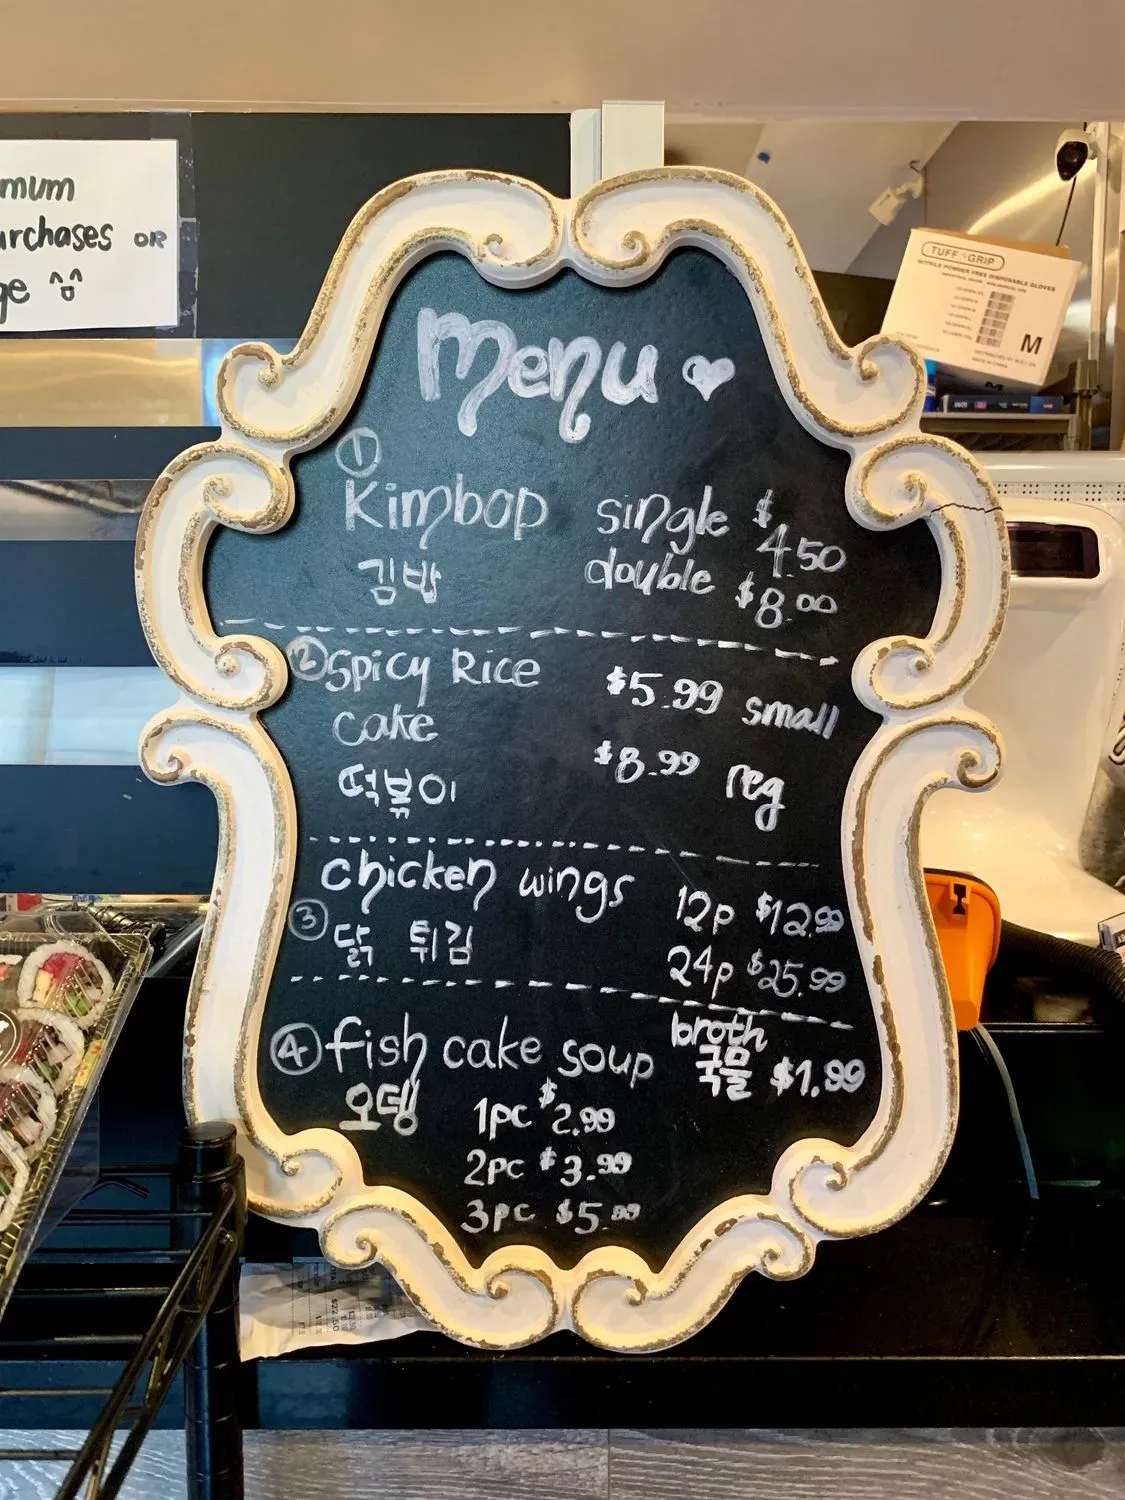 mum
urchases OR
ge
TUFF GRIP
NITRILE POWDER FREE DISPOSABLE GLOVES
M
Menu
1
Kimbop single $4.50
김밥 double $8.00
2 Spicy Rice $5.99 small
cake $8.99 reg
떡볶이
chicken wings 12p $12.99
3 닭 튀김 24p $25.99
broth
4 fish cake soup 국물 $1.99
오뎅 1pc $2.99
2pc $3.99
3pc $5.99